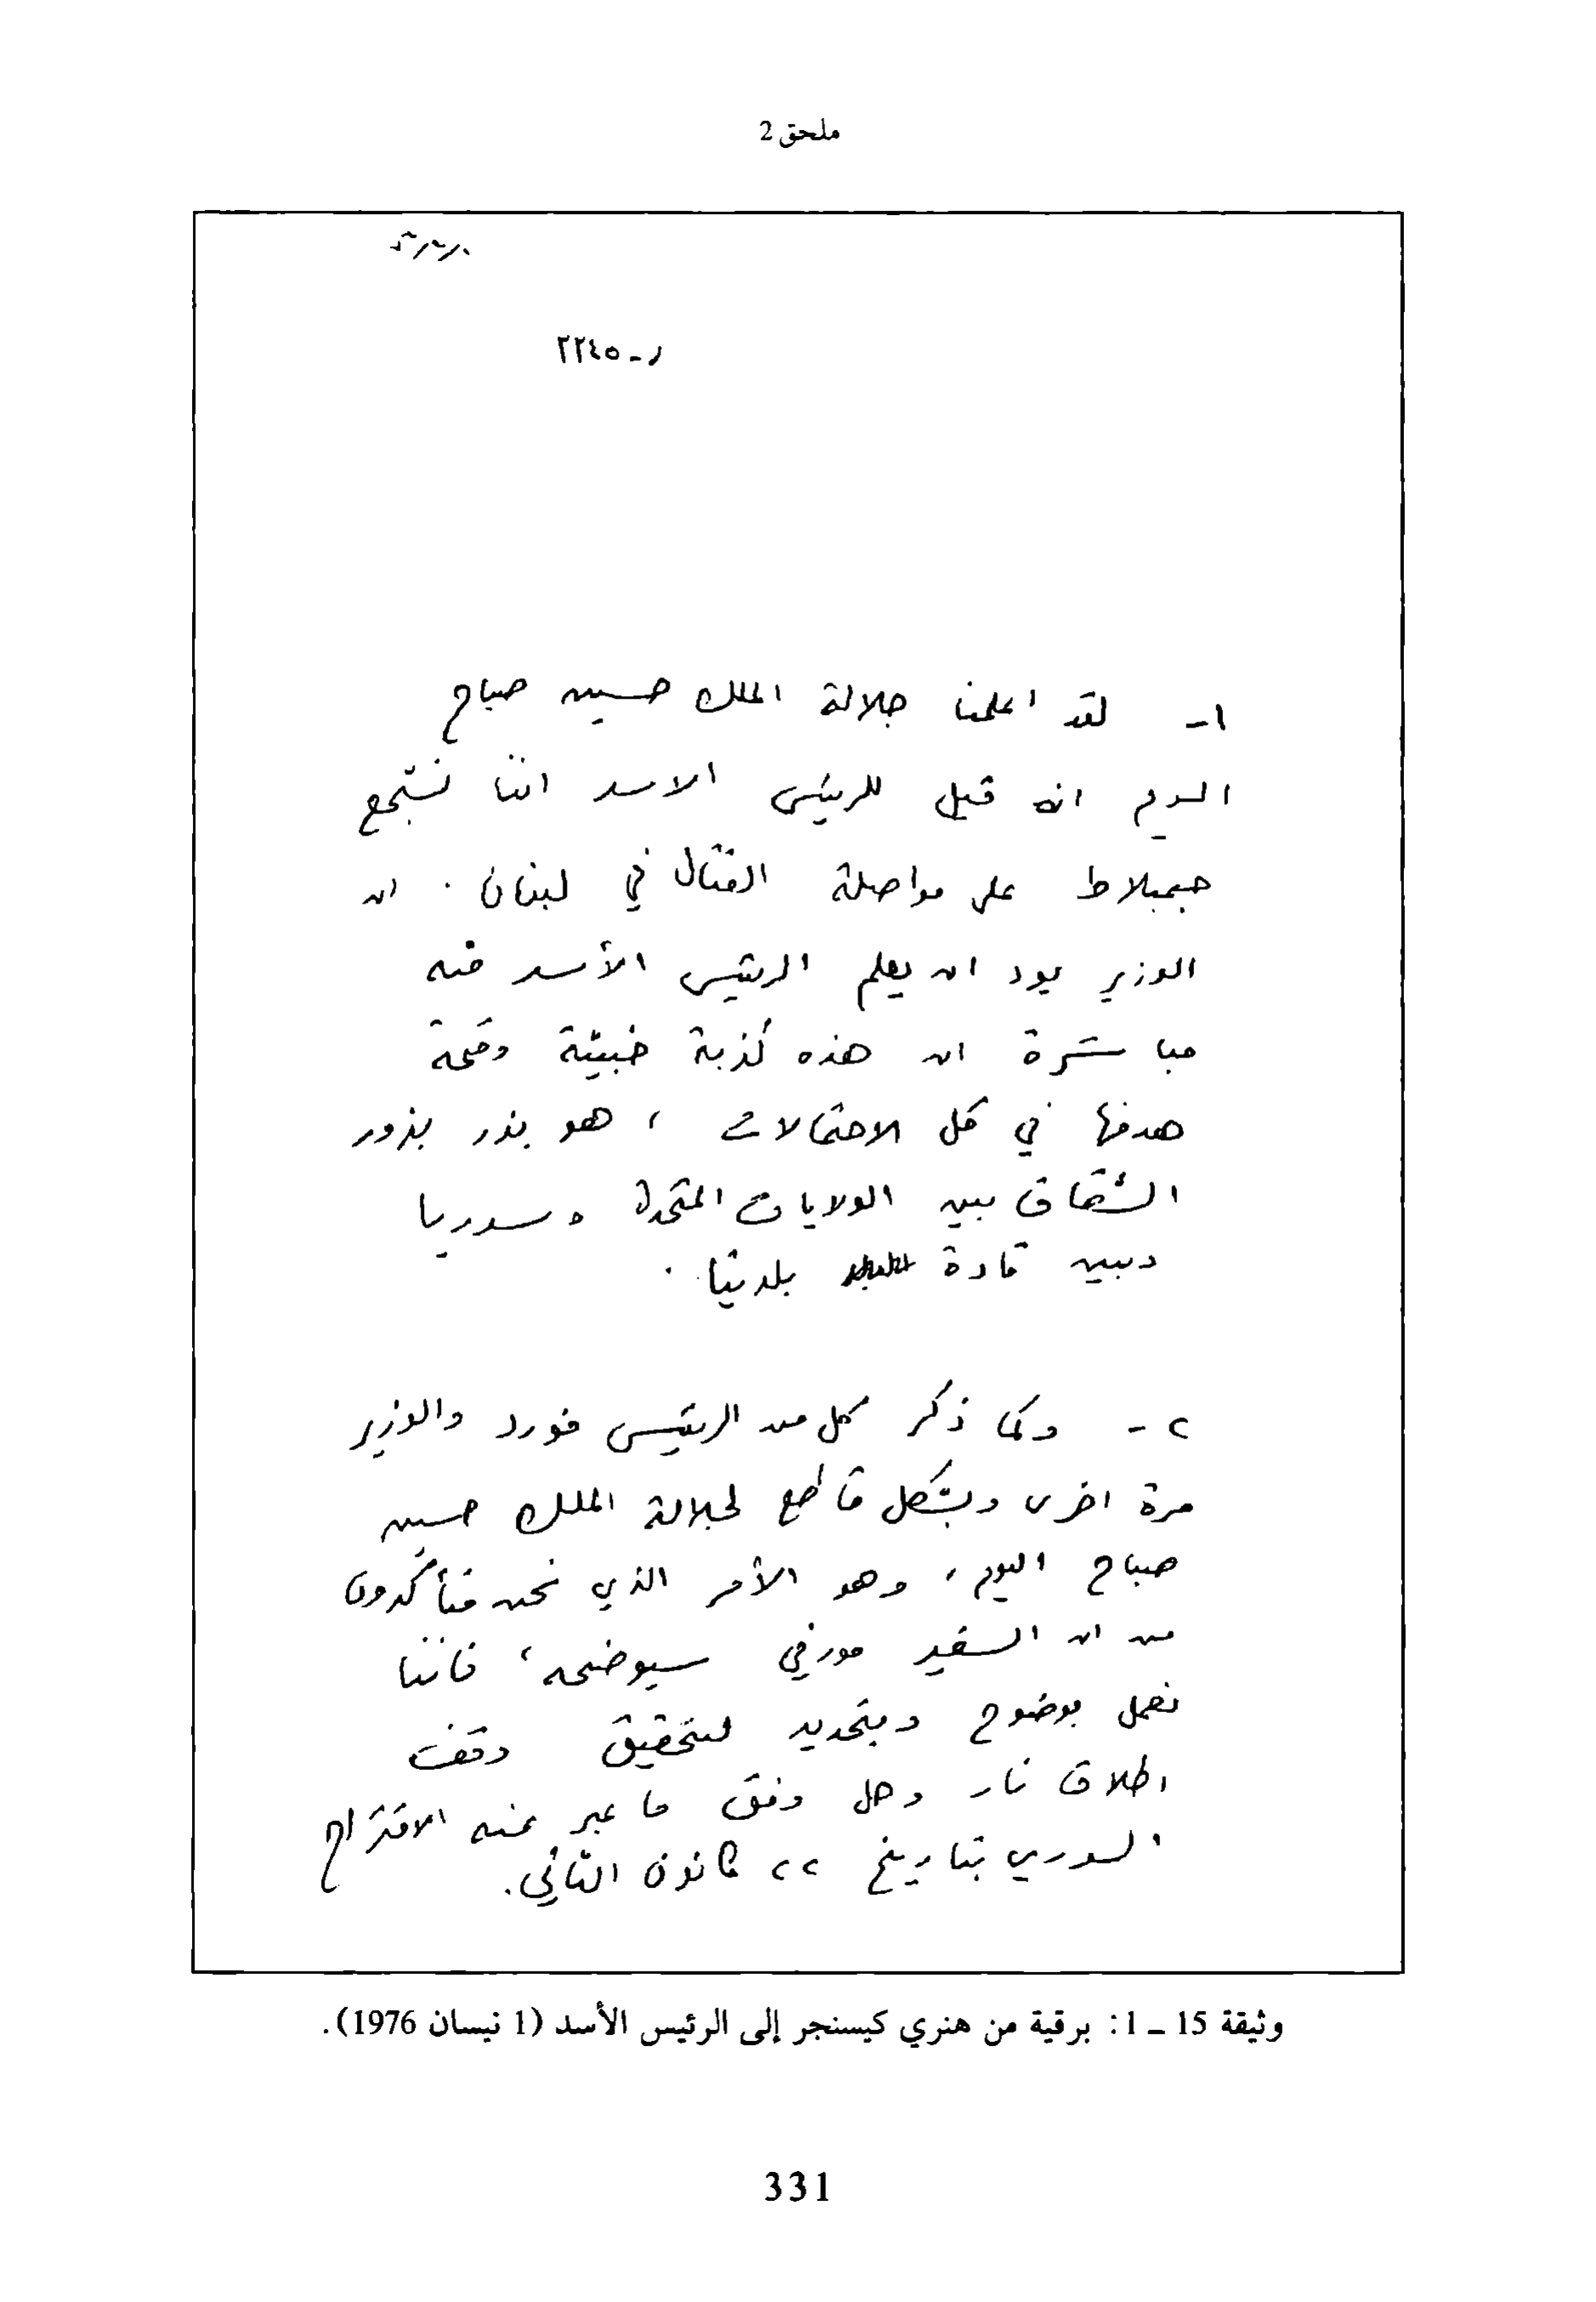 ملحق 2
ر - ٢٢٤٥
١- لقد اعلمنا جلالة الملك حسين صباح
اليوم انه قيل للرئيس الاسد اننا نشجع
جمبلاط على مواصلة القتال في لبنان . ان
الوزير يود ان يعلم الرئيس الأسد منه
مباشرة ان هذه كذبة خبيثة وقحة
هدفها في كل الاحتمالات ، هو بذر بذور
الشقاق بين الولايات المتحدة و سوريا
وبين قادة بلدينا .
٢ - وكما ذكر كل من الرئيس فورد والوزير
مرة اخرى وبشكل قاطع لجلالة الملك حسين
صباح اليوم ، وهو الأمر الذي نحن متأكدون
من ان السفير مورفي سيوضحه ، فاننا
نعمل بوضوح وبتحديد لتحقيق وقف
اطلاق نار وحل وفق ما عبر عنه الاقتراح
السوري بتاريخ ٢٢ كانون الثاني .
وثيقة 15 ـ 1: برقية من هنري كيسنجر إلى الرئيس الأسد (1 نيسان 1976).
331